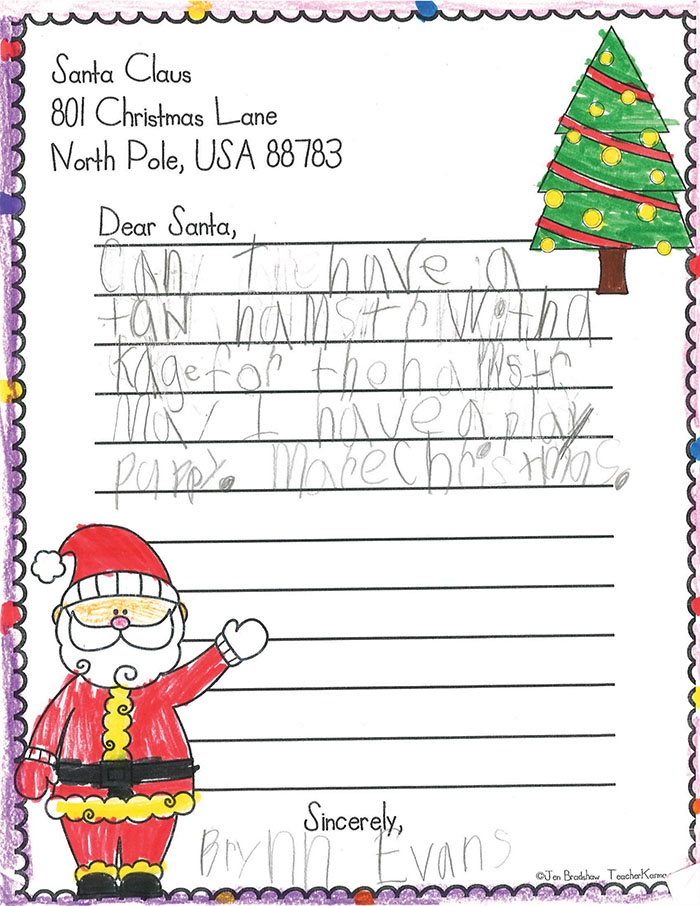 Santa Claus
801 Christmas Lane
North Pole, USA 88783
Dear Santa,
Can I have a
tan hamstr With a
kage for the hamstr
May I have a play
puppy. Mare Christmas.
Sincerely,
Brynn Evans
©Jen Bradshaw TeacherKarma